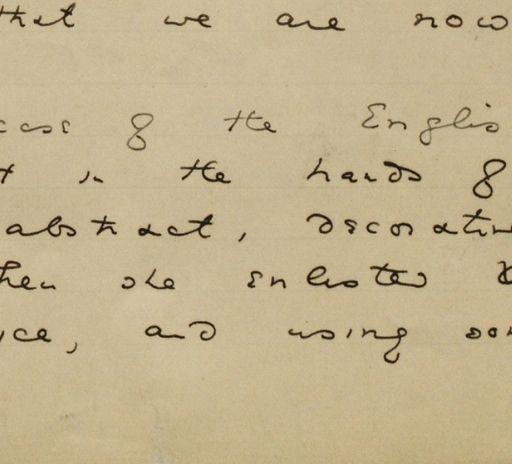 that we are now
case of the Englis
t in the hands of
abstract, decorativ
then she enlisted
ce, and using so